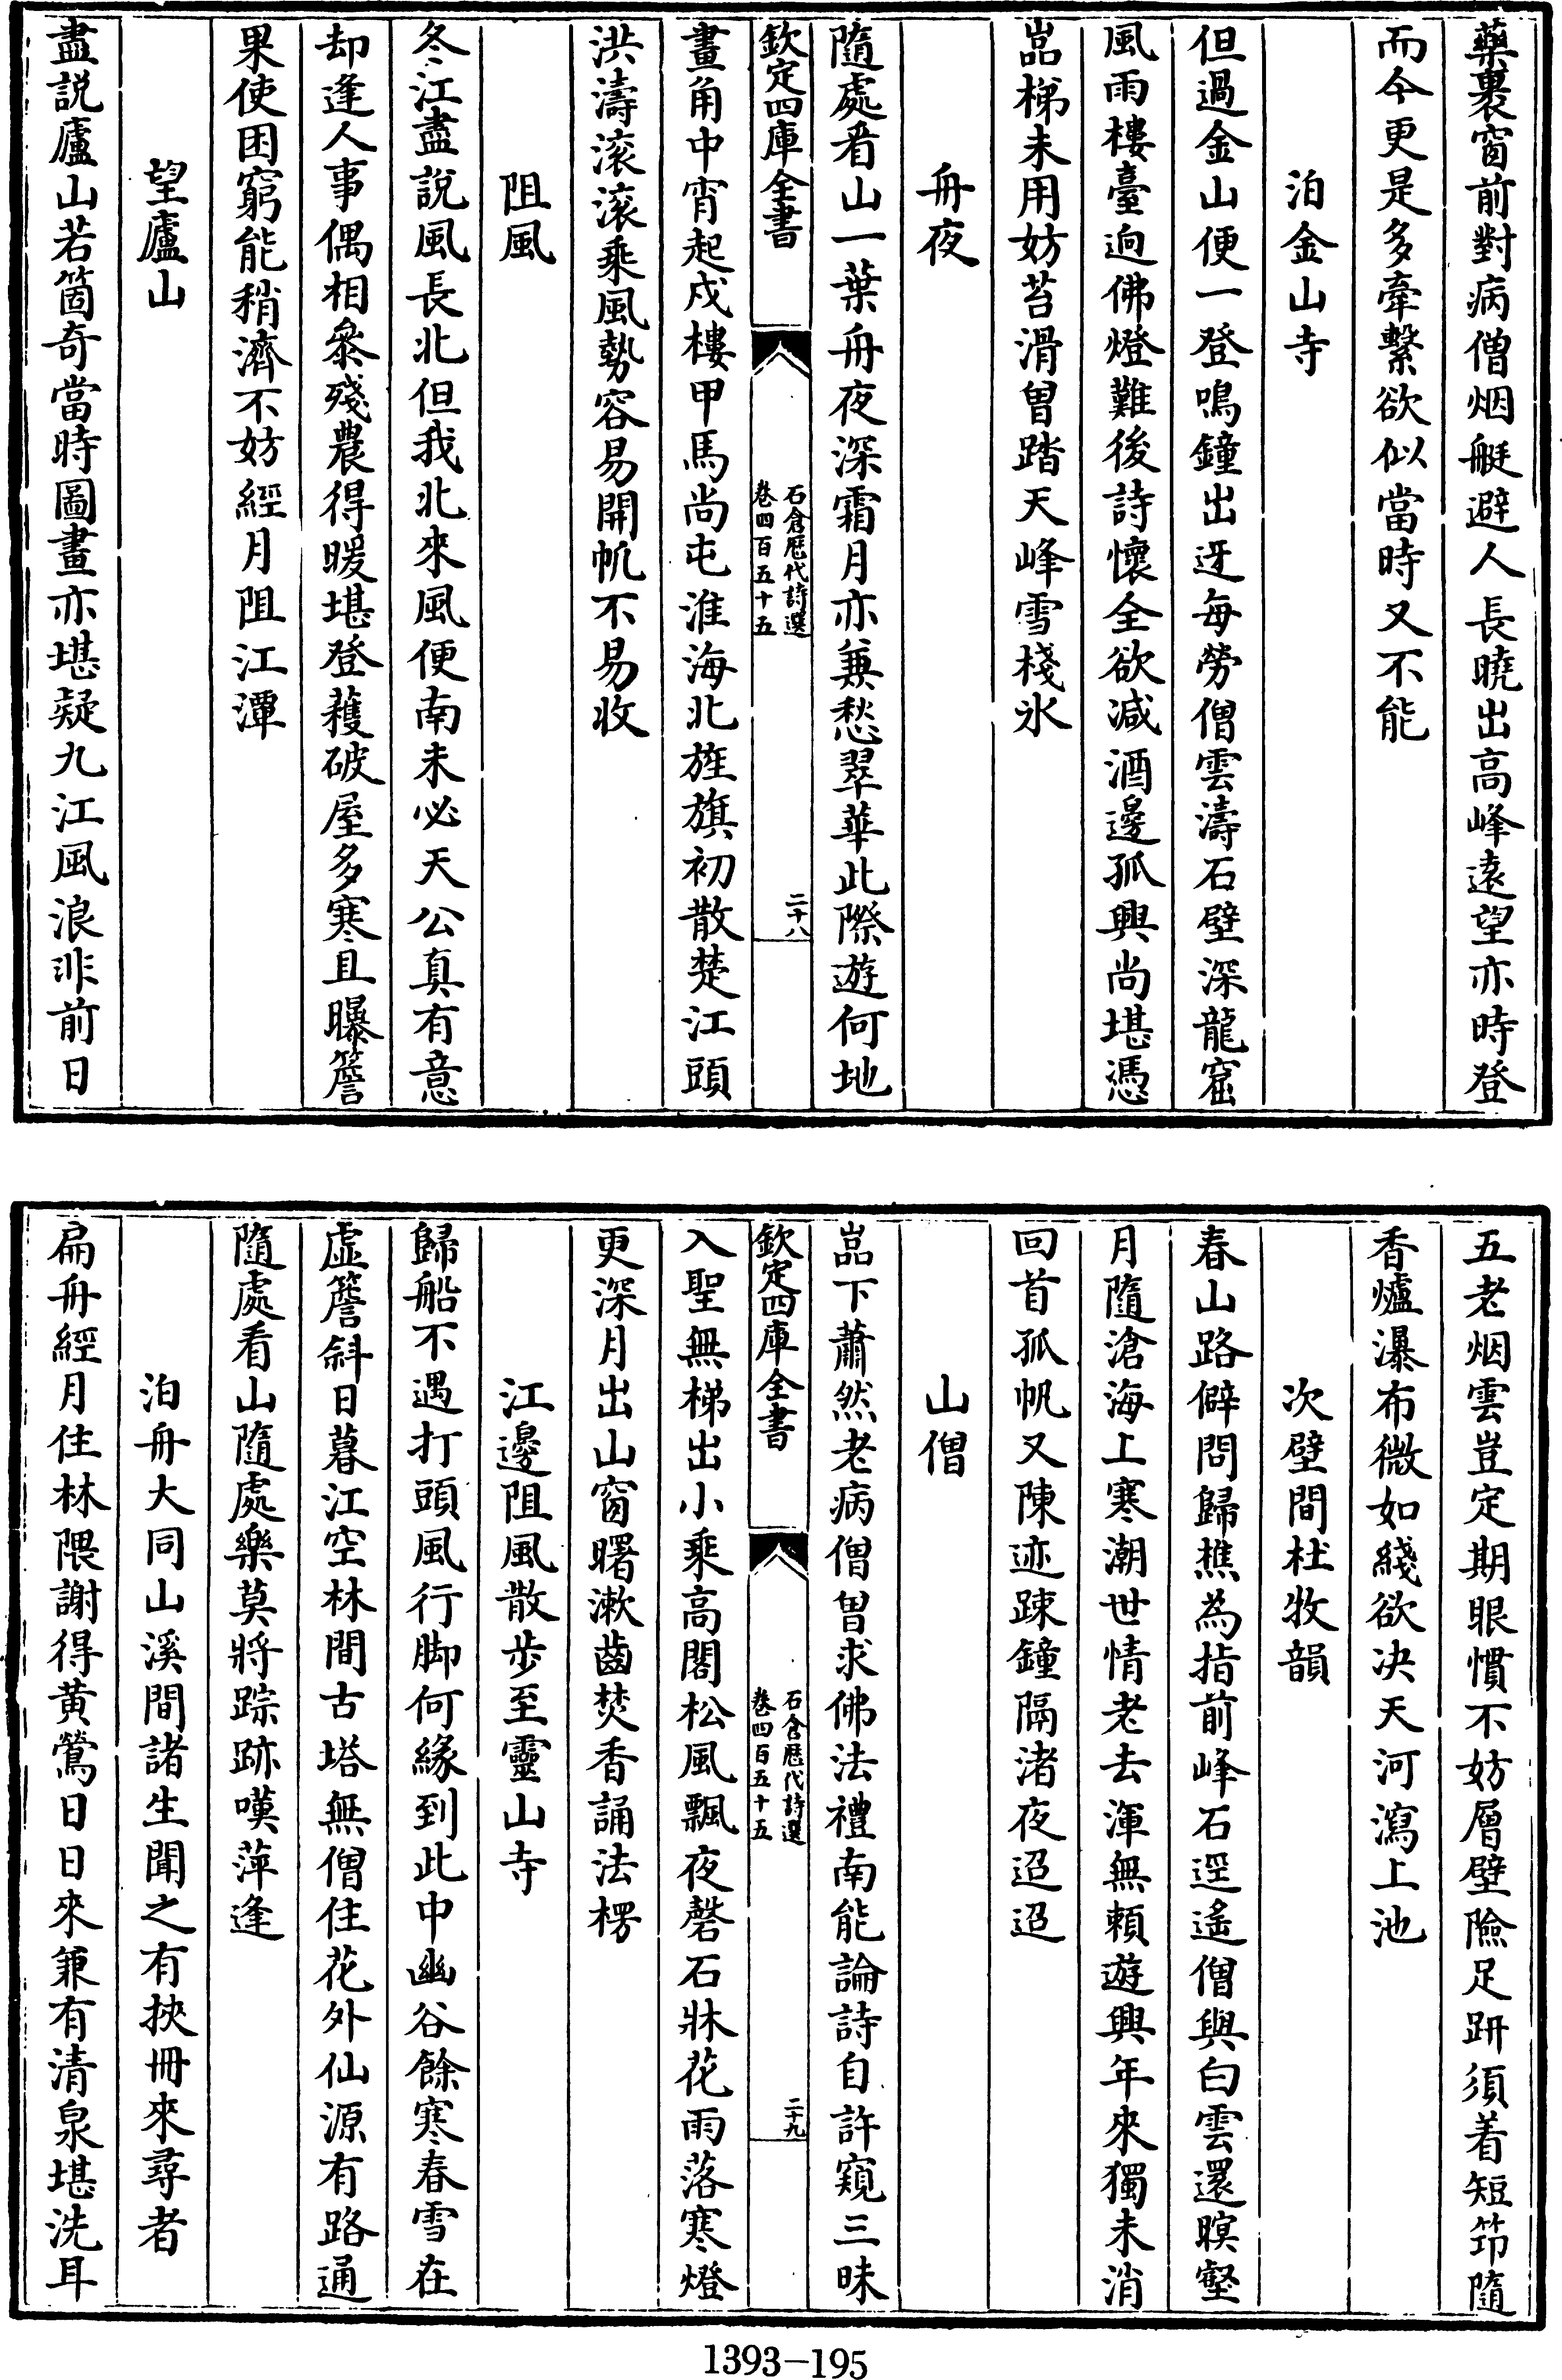 藥裹窗前對病僧烟艇避人長曉出高峰遠望亦時登
而今更是多牽繫欲似當時又不能
泊金山寺
但過金山便一登鳴鐘出迓每勞僧雲濤石壁深龍窟
風雨樓臺逈佛燈難後詩懷全欲减酒邊孤興尚堪憑
嵓梯未用妨苔滑曽踏天峰雪棧氷
舟夜
隨處看山一葉舟夜深霜月亦兼愁翠華此際遊何地
欽定四庫全書
石倉歴代詩選
卷四百五十五
二十八
畫角中宵起戍樓甲馬尚屯淮海北旌旗初散楚江頭
洪濤滚滚乘風勢容易開帆不易收
阻風
冬江盡說風長北但我北來風便南未必天公真有意
却逢人事偶相叅殘農得暖堪登穫破屋多寒且曝簷
果使困窮能稍濟不妨經月阻江潭
望廬山
盡説廬山若箇奇當時圖畫亦堪疑九江風浪非前日
五老烟雲豈定期眼慣不妨層壁險足趼須着短笻隨
香爐瀑布微如綫欲决天河瀉上池
次壁間杜牧韻
春山路僻問歸樵為指前峰石逕遙僧與白雲還暝壑
月隨滄海上寒潮世情老去渾無賴遊興年來獨未消
回首孤帆又陳迹踈鐘隔渚夜迢迢
山僧
嵓下蕭然老病僧曽求佛法禮南能論詩自許窺三昧
欽定四庫全書
石倉歴代詩選
卷四百五十五
二十九
入聖無梯出小乘高閣松風飄夜磬石牀花雨落寒燈
更深月出山窗曙漱齒焚香誦法楞
江邊阻風散步至靈山寺
歸船不遇打頭風行脚何緣到此中幽谷餘寒春雪在
虚簷斜日暮江空林間古塔無僧住花外仙源有路通
隨處看山隨處樂莫將踪跡嘆萍逢
泊舟大同山溪間諸生聞之有挾冊來尋者
扁舟經月住林隈謝得黄鶯日日來兼有清泉堪洗耳
1393-195